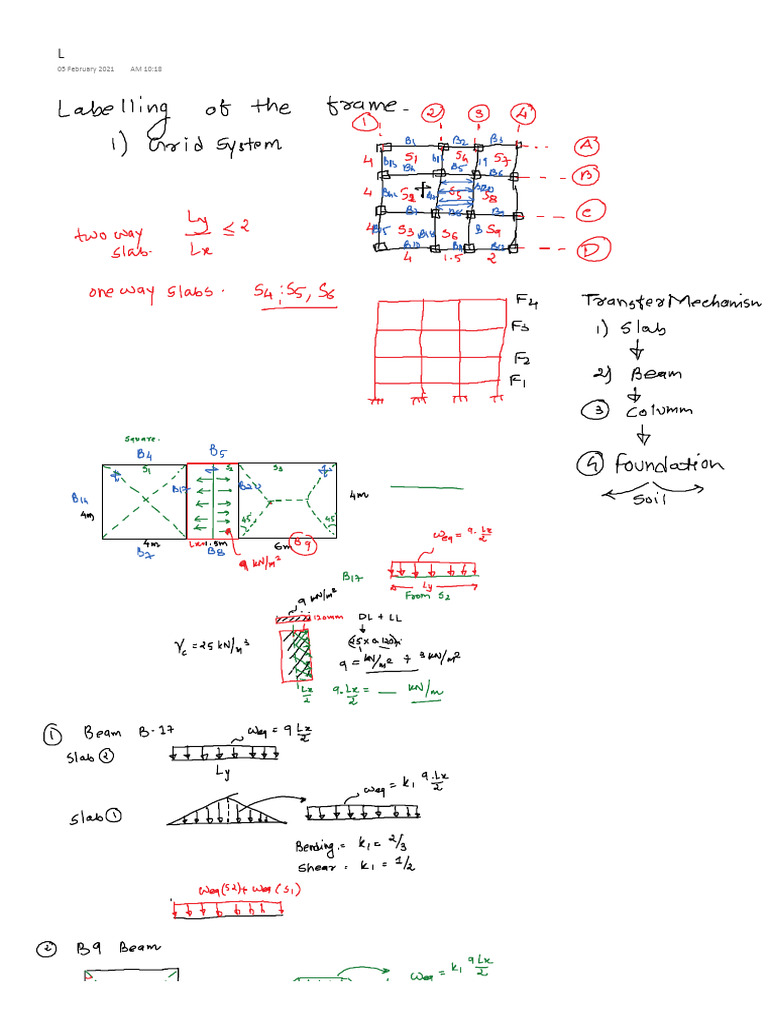 L
05 February 2021 AM 10:18
Labelling of the frame.
1) Grid System
1 2 3 4
A
B
C
D
B1 B2 B3
4 B13 S1 S4 S7
B5 B6
4 S2 S5 S8
4 S3 S6 S9
4 1.5 2
two way slab. Ly/Lx ≤ 2
one way slabs. S4; S5, S6
F4
F3
F2
F1
Transfer Mechanism
1) Slab
2) Beam
3 Column
4 Foundation
Soil
Square.
B4 B5
S1 S2 S3
B14 B17
4m 4m
45 45
4m Lx=1.5m 6m B9
B7 B8
q kN/m²
weq = q.Lx/2
B17
Ly
From S2
q kN/m²
120mm DL + LL
γc = 25 kN/m³
q = kN/m² + 3 kN/m²
Lx/2 q.Lx/2 = __ kN/m
1 Beam B-17 weq = q Lx/2
Slab 2
Ly
Slab 1 weq = k1 q.Lx/2
Bending = k1 = 2/3
Shear = k1 = 1/2
weq(S2) + weq(S1)
2 B9 Beam
weq = k1 qLx/2